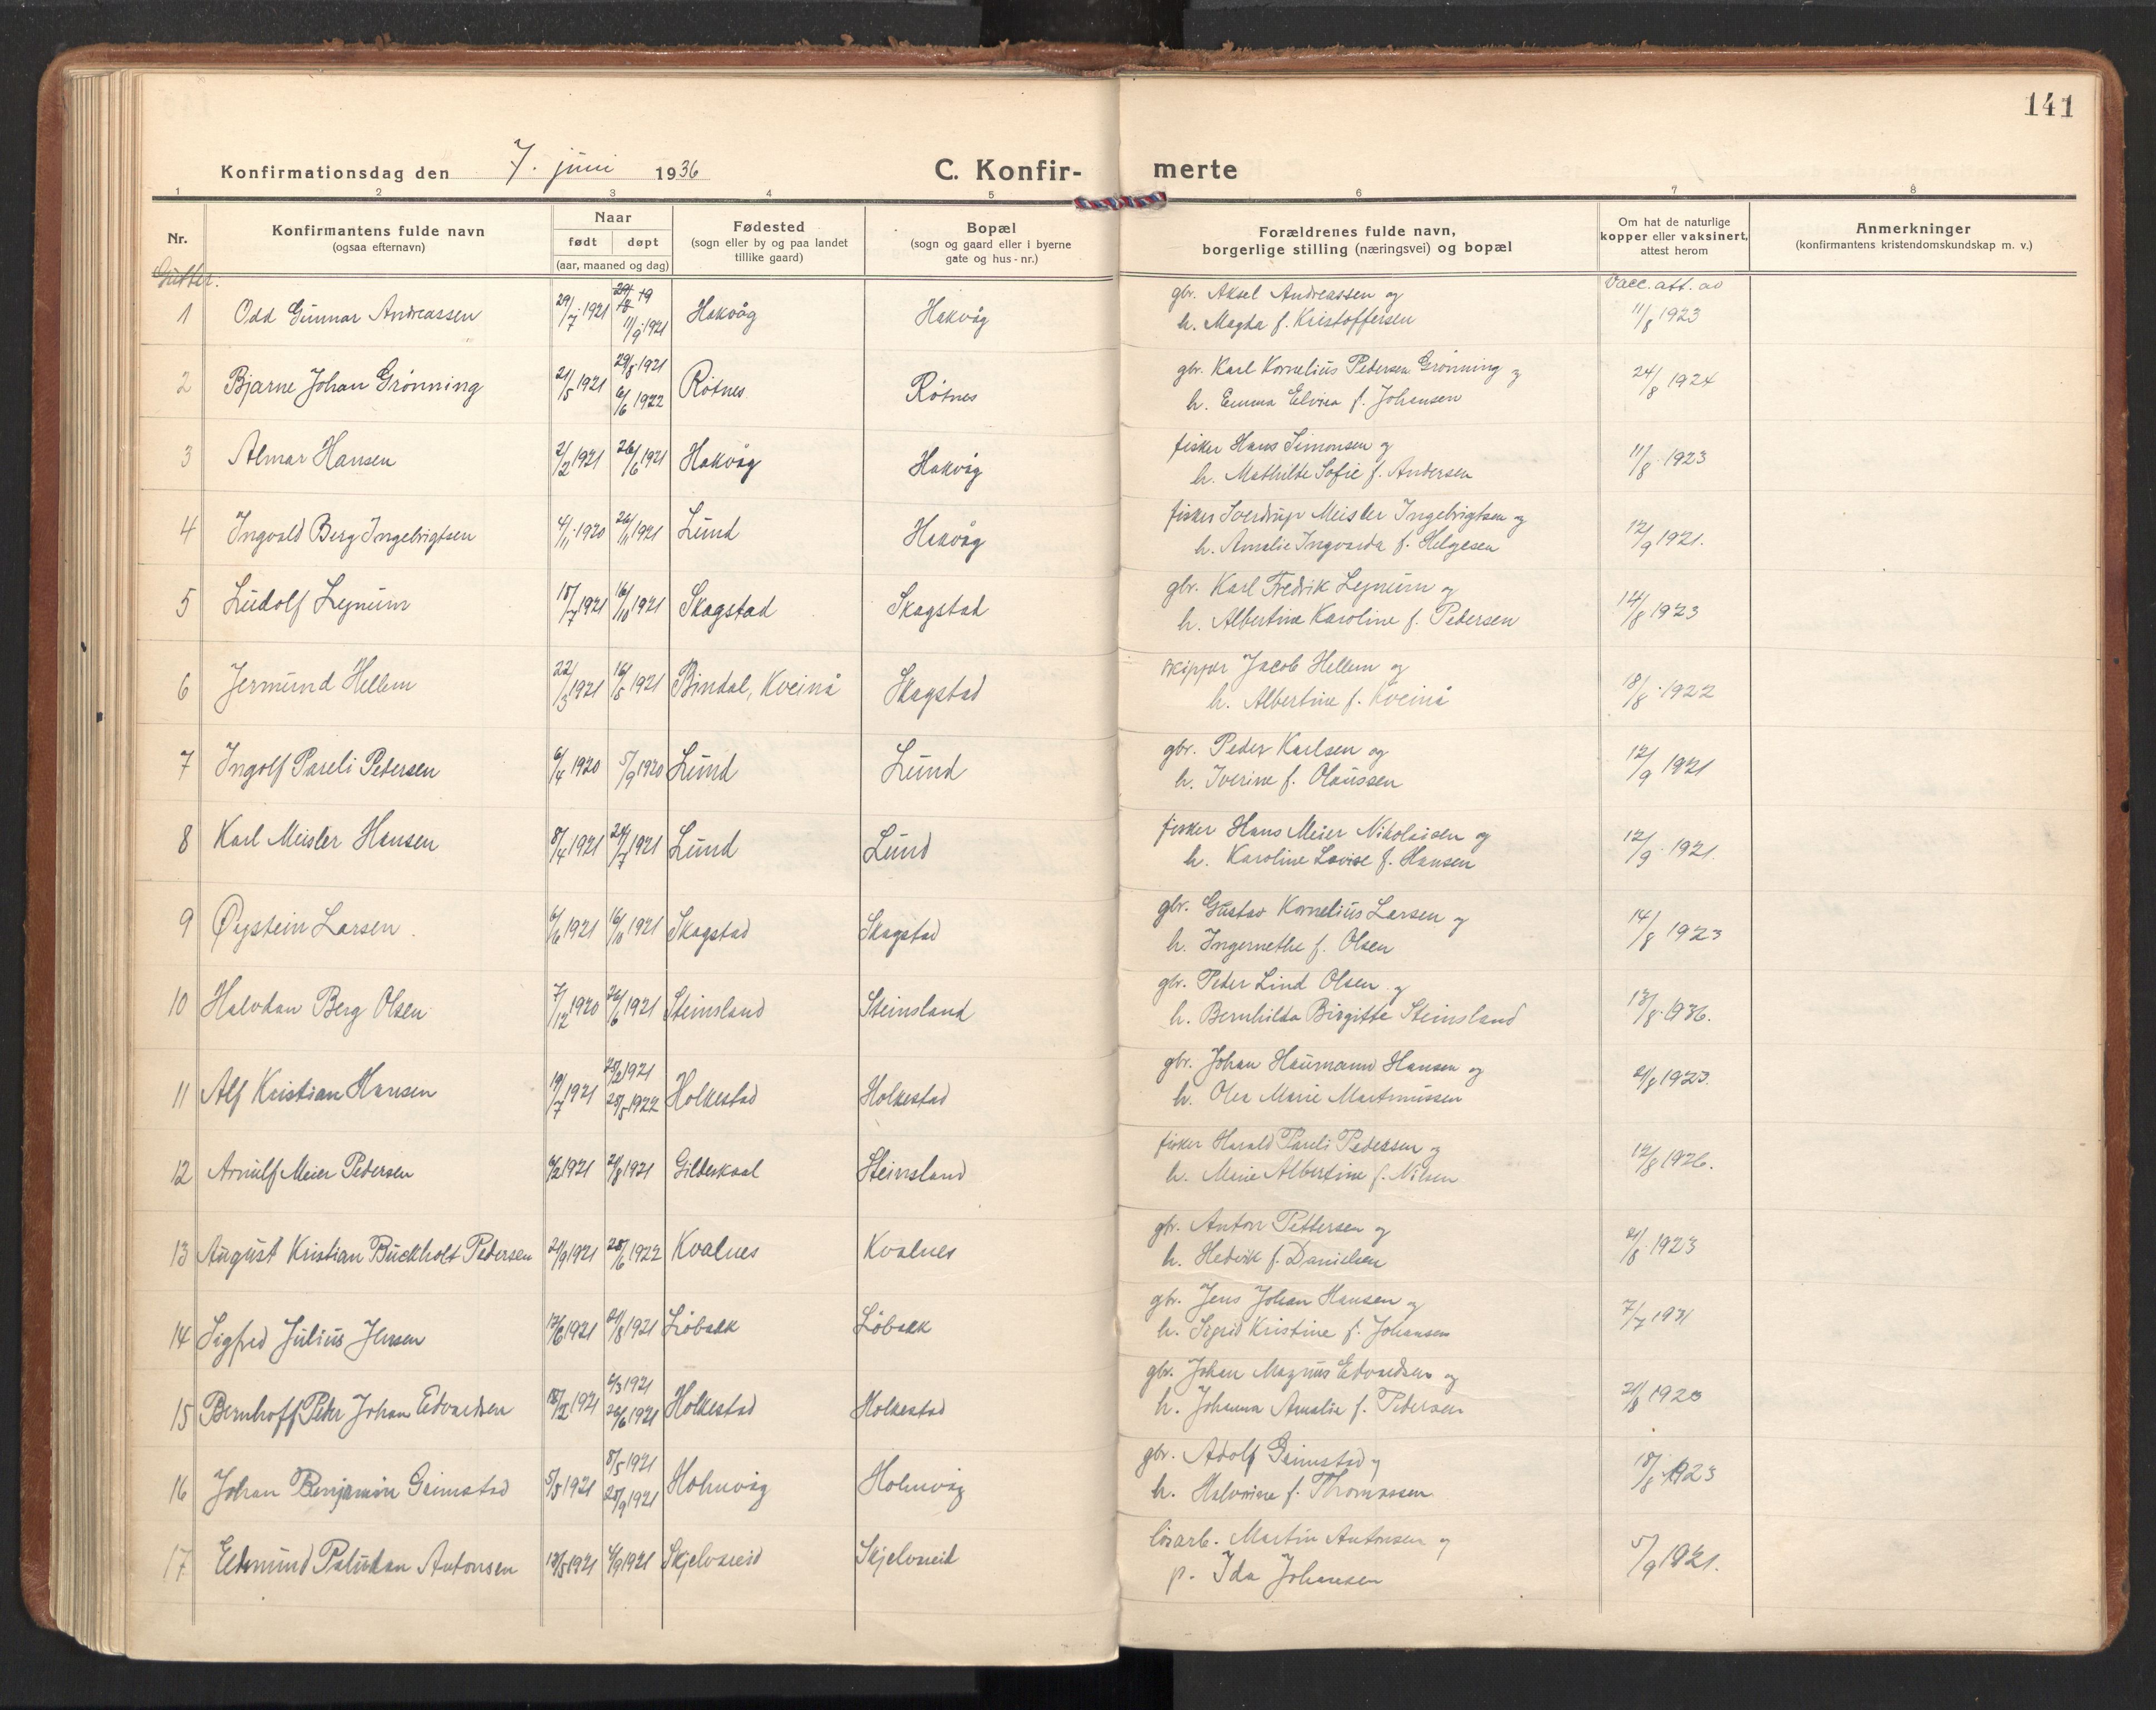 141
Konfirmationsdag den 7. juni 1936
C. Konfir- merte
1 2 3 4 5 6 7 8
Nr.
Konfirmantens fulde navn
(ogsaa efternavn)
Naar
født døpt
(aar, maaned og dag)
Fødested
(sogn eller by og paa landet
tillike gaard)
Bopæl
(sogn og gaard eller i byerne
gate og hus-nr.)
Forældrenes fulde navn,
borgerlige stilling (næringsvei) og bopæl
Om hat de naturlige
kopper eller vaksinert,
attest herom
Anmerkninger
(konfirmantens kristendomskundskap m. v.)
Gutter.
Vacc. att. av
1 Odd Gunnar Andreassen 29/7 1921 11/9 1921 Hakvåg Hakvåg gbr. Aksel Andreassen og
h. Magda f. Kristoffersen 11/8 1923
2 Bjarne Johan Grønning 21/5 1921 29/5 1921 6/6 1922 Røtnes Røtnes gbr. Karl Kornelius Pedersen Grønning og
h. Emma Elvira f. Johansen 24/8 1924
3 Almar Hansen 2/2 1921 26/6 1921 Hakvåg Hakvåg fisker Hans Simonsen og
h. Mathilde Sofie f. Andersen 11/8 1923
4 Ingvald Berg Ingebrigtsen 4/11 1920 Lund Hakvåg fisker Sverdrup Meisler Ingebrigtsen og
h. Amalie Ingvarda f. Helgesen 12/9 1921.
5 Ludolf Lynum 15/7 1921 16/10 1921 Skagstad Skagstad gbr. Karl Fredrik Lynum og
h. Albertine Karoline f. Pedersen 14/8 1923
6 Jermund Hellem 22/3 1921 16/5 1921 Bindal, Kveinå Skagstad skipper Jacob Hellem og
h. Albertine f. Kveinå 18/8 1922
7 Ingolf Pareli Pedersen 6/4 1920 5/9 1920 Lund Lund gbr. Peder Karlsen og
h. Iverine f. Olaussen 12/9 1921
8 Karl Meisler Hansen 8/4 1921 24/7 1921 Lund Lund fisker Hans Meier Nikolaisen og
h. Karoline Lovise f. Hansen 12/9 1921.
9 Øystein Larsen 6/6 1921 16/10 1921 Skagstad Skagstad gbr. Gustav Kornelius Larsen og
h. Ingernethe f. Olsen 14/8 1923
10 Halvdan Berg Olsen 7/12 1920 26/6 1921 Steinsland Steinsland gbr. Peder Lind Olsen og
h. Bernhilda Birgitte Steinsland 13/8 1936.
11 Alf Kristian Hansen 19/7 1921 28/5 1922 Holkestad Holkestad gbr. Johan Haumann Hansen og
h. Olea Marie Martinussen 21/8 1923.
12 Arnulf Meier Pedersen 6/2 1921 21/8 1921 Gildeskaal Steinsland fisker Harald Pareli Pedersen og
h. Marie Albertine f. Nilsen 12/8 1926.
13 August Kristian Buckholt Pedersen 21/9 1921 25/6 1922 Kvalnes Kvalnes gbr. Anton Pettersen og
h. Hedvik f. Danielsen 21/8 1923
14 Sigfred Julius Jensen 12/6 1921 21/8 1921 Løbakk Løbakk gbr. Jens Johan Hansen og
h. Sigrid Kristine f. Johansen 7/7 1931
15 Bernhoff Peder Johan Edvardsen 18/2 1921 6/3 1921 26/6 1921 Holkestad Holkestad gbr. Johan Magnus Edvardsen og
h. Johanna Amalie f. Pedersen 21/8 1923
16 Johan Benjamin Grimstad 5/5 1921 8/5 1921 25/9 1921 Holmvåg Holmvåg gbr. Adolf Grimstad og
h. Halvorine f. Thomassen 18/8 1923
17 Edmund Paludan Antonsen 13/5 1921 4/9 1921 Skjelvareid Skjelvareid løsarb. Martin Antonsen og
p. Ida Johansen 5/9 1921.